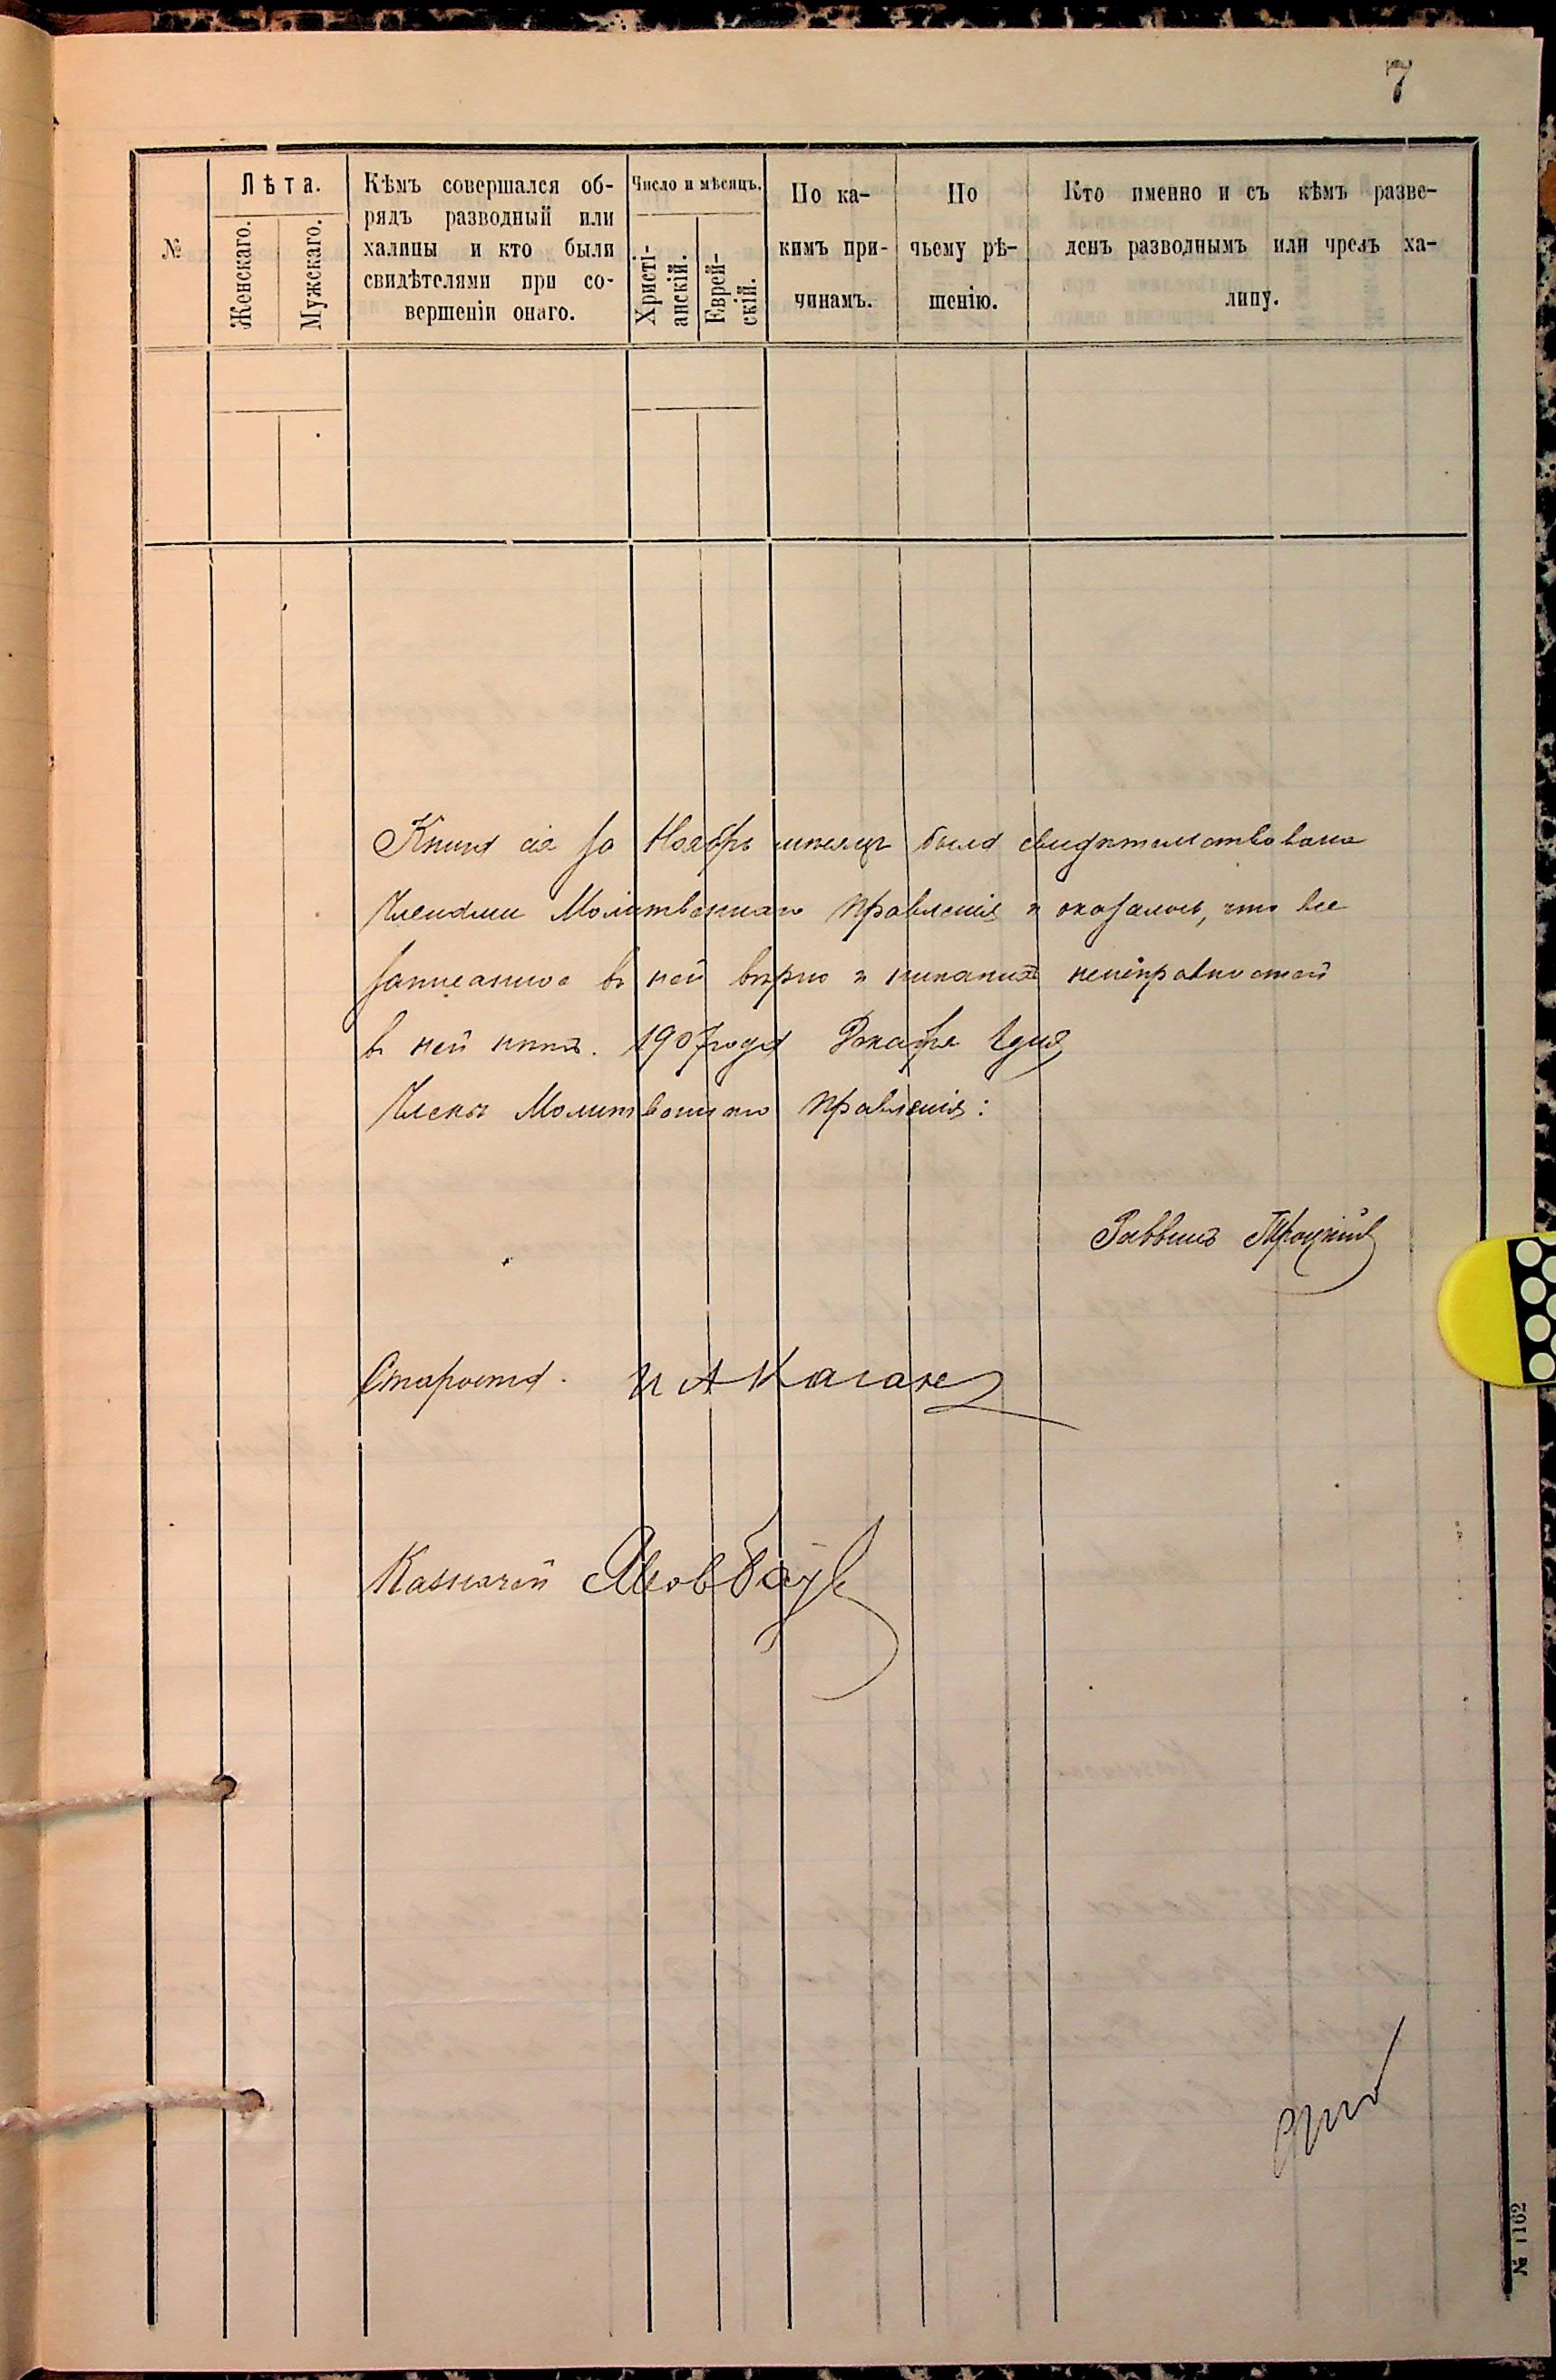 7
№
Лѣта.
Женскаго.
Мужскаго.
Кѣмъ совершался об-
рядъ разводный или
халицы и кто были
свидѣтелями при со-
вершеніи онаго.
Число и мѣсяцъ.
Христі-
анскій.
Еврей-
скій.
По ка-
кимъ при-
чинамъ.
По
чьему рѣ-
шенію.
Кто именно и съ кѣмъ разве-
денъ разводнымъ или чрезъ ха-
лицу.
Книга сія за Ноябрь мѣсяцъ была свидѣтельствована
Членами Молитвеннаго Правленія и оказалось, что все
записанное въ ней вѣрно и никакихъ неисправностей
въ ней нѣтъ. 1907 года Декабря 1 дня
Члены Молитвеннаго Правленія:
Раввинъ Троцкій
Староста. И А Каган
Казначей Яков
№ 1162